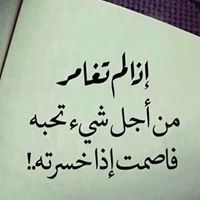 إذا لم تغامر
من أجل شيء تحبه
فاصمت إذا خسرته.!